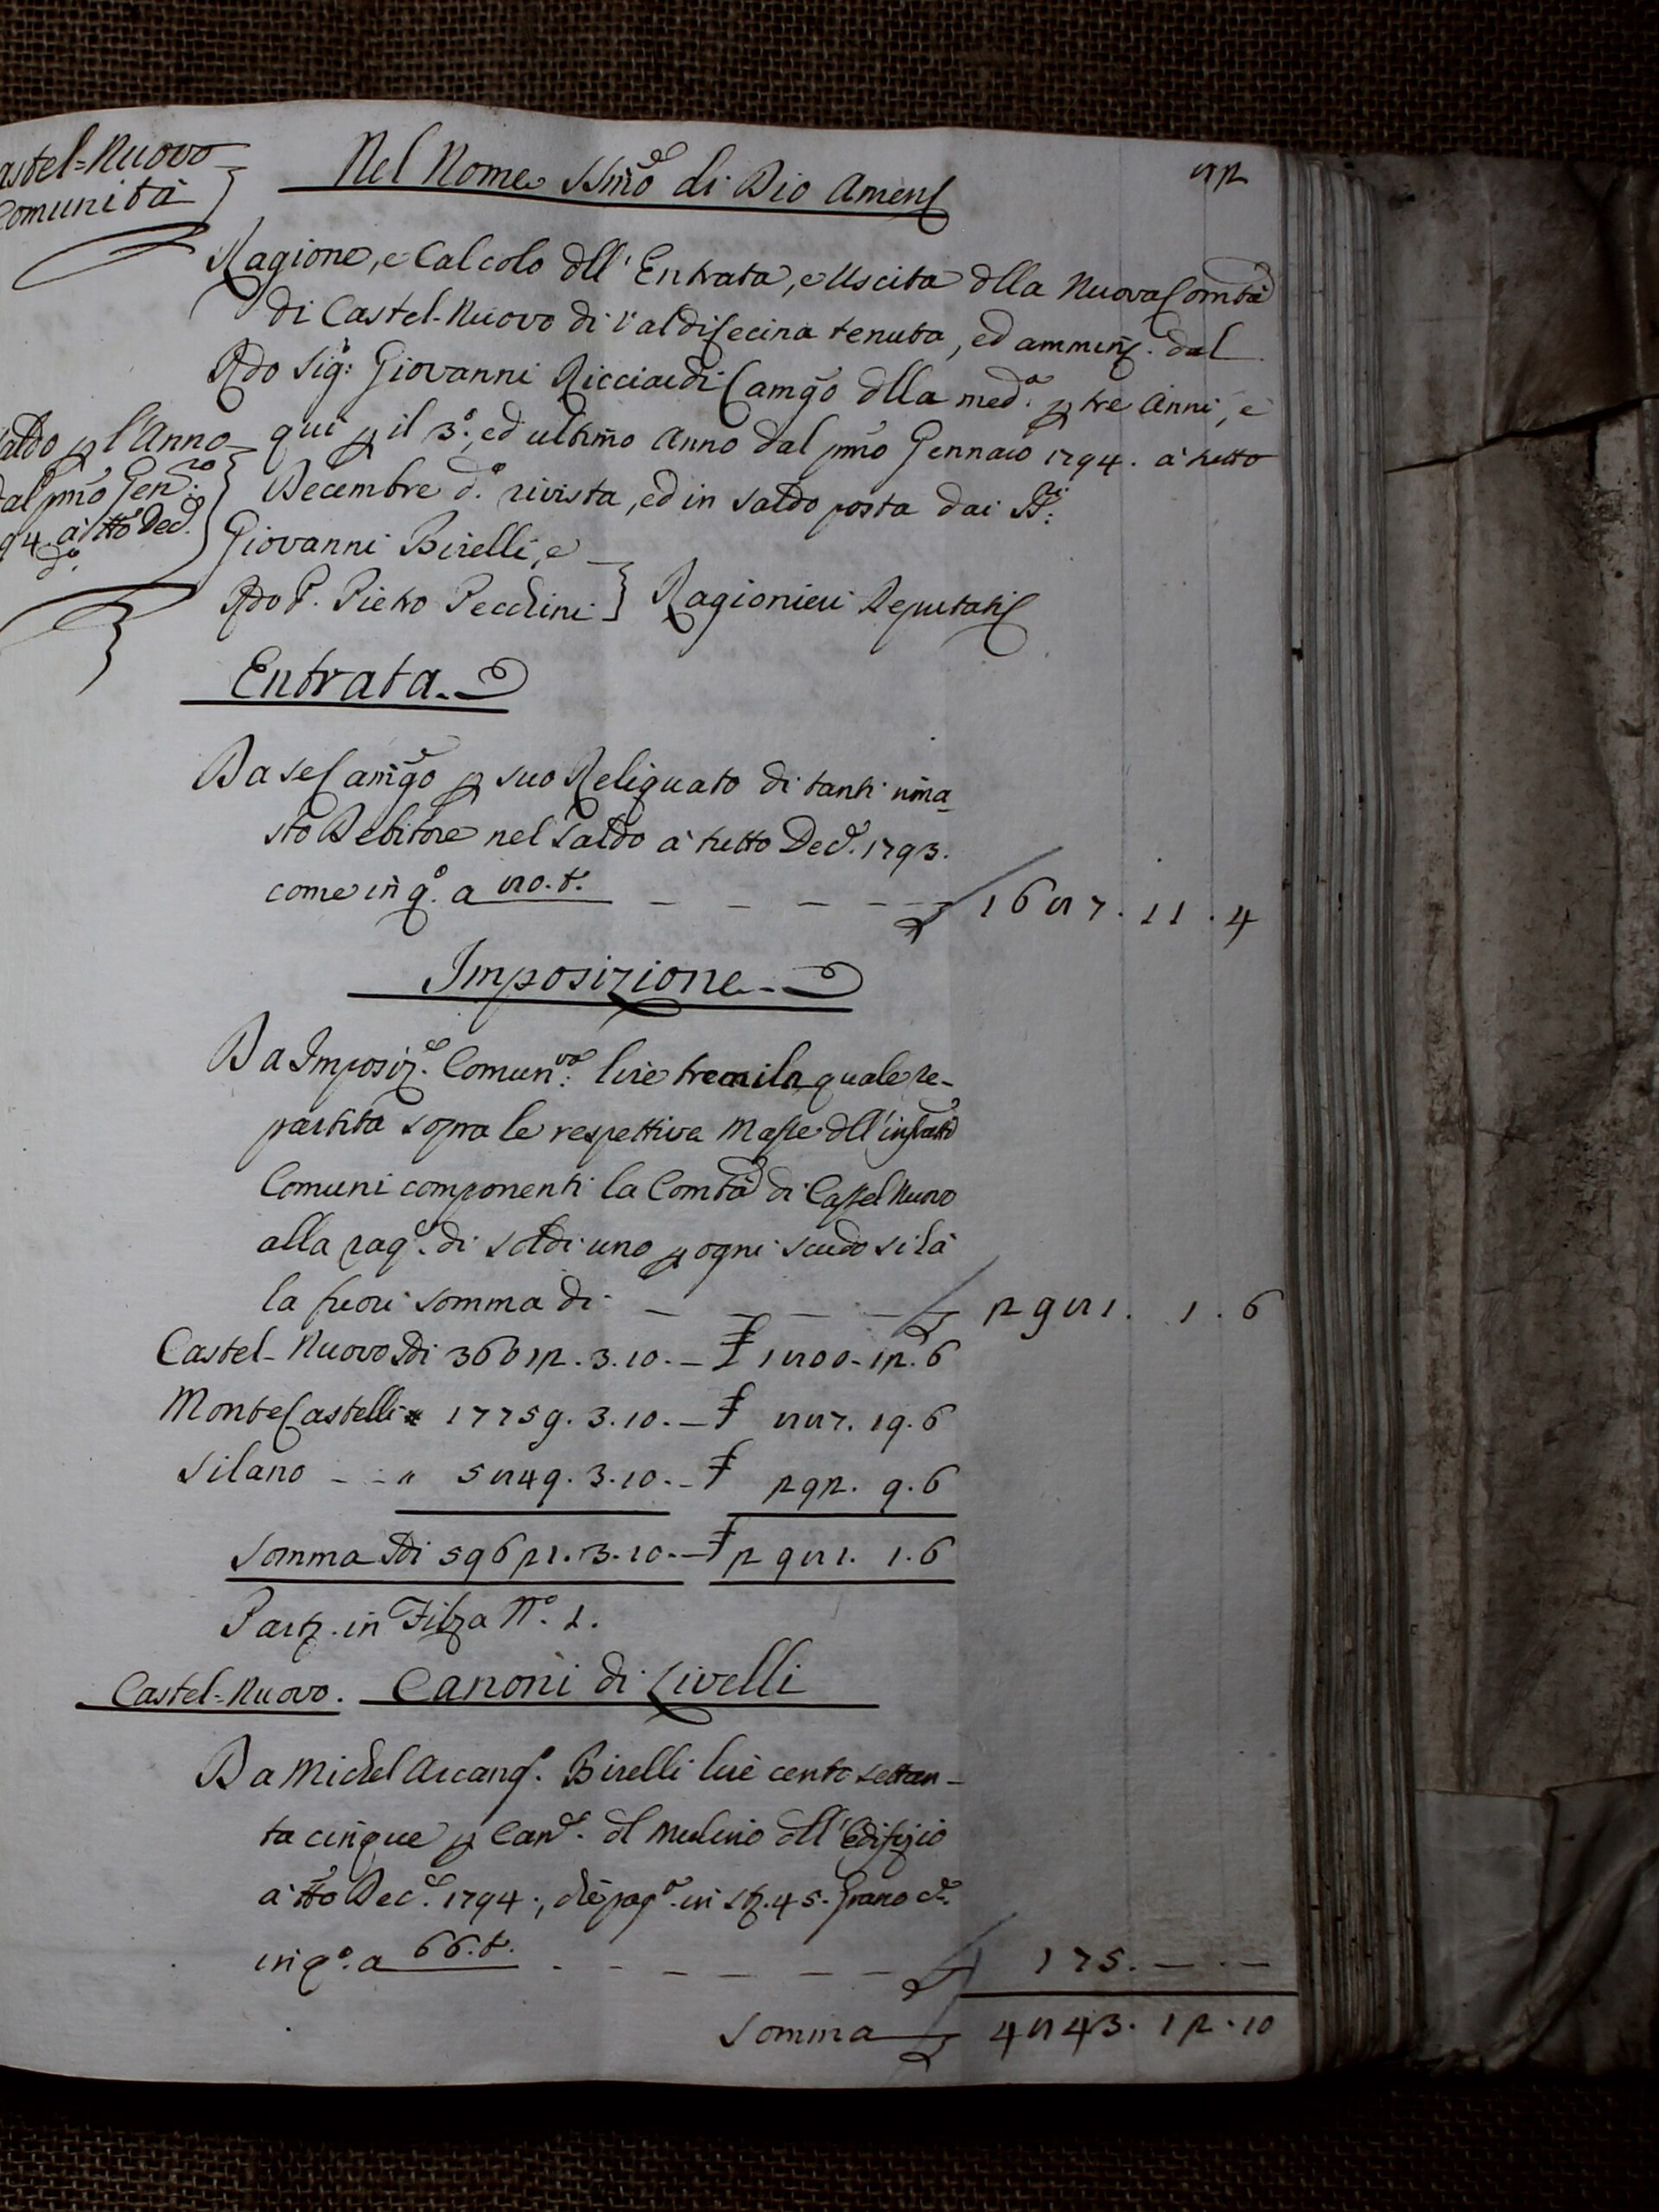 Castel-Nuovo
Comunità
Nel Nome SSmo di Dio Amen
82
Ragione, e Calcolo dll'Entrata, e Uscita dlla Nuova Comtà
di Castel-Nuovo di Valdicecina tenuta, ed ammin. dal
Rdo Sigr: Giovanni Ricciardi Camgo dlla meda. p tre Anni, e
qui p il 3o. ed ultimo Anno dal pmo Gennaio 1794. a tutto
Decembre do. rivista, ed in saldo posta dai SSri:
Giovanni Birelli, e
Rdo P. Pietro Pecchini } Ragionieri Deputati
Saldo p l'Anno
dal pmo Genro.
94. a tto Dece.
do.
Entrata.
Da se Camgo p suo Reliquato di tanti rima-
sto Debitore nel Saldo a tutto Dece. 1793.
come in qo. a 80. t. £ 1687. 11. 4
Imposizione
Da Imposize. Comunva: lire tremila quale re-
partita sopra le respettive Masse dll'infratti
Comuni componenti la Comtà di Castel Nuovo
alla rage. di soldi uno p ogni scudo si fà
la fuori somma di £ 2981. 1. 6
Castel-Nuovo Sdi 36012. 3. 10. — £ 1800. 12. 6
Monte Castelli " 17759. 3. 10. — £ 887. 19. 6
Silano - - " 5849. 3. 10. — £ 292. 9. 6
Somma Sdi 59621. 3. 10. — £ 2981. 1. 6
Partz. in Filza No. 1.
Castel-Nuovo. Canoni di Livelli
Da Michel Arcango. Birelli lire cento settan-
ta cinque p Cane. dl Mulino dll'Edifizio
a tto Dece. 1794., che pago. in stz. 45. Grano ce.
in qo. a 66. t. £ 175. — . —
Somma £ 4843. 12. 10